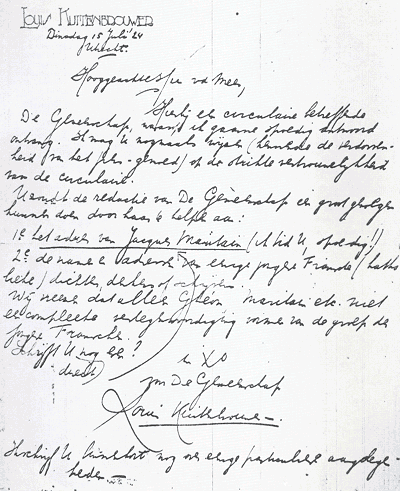 LOUIS KUITENBROUWER
Dinsdag 15 Juli '24
Utrecht.
Hooggeachte v.d. Meer,
Hierbij een circulaire betreffende
De Gemeenschap, waarop ik gaarne spoedig antwoord
ontvang. Ik mag U nogmaals wijzen
heid van het gemoed) op de strikte vertrouwelijkheid
van de circulaire.
U zoudt de redactie van De Gemeenschap een groot genoegen
kunnen doen door haar te helpen aan:
1e het adres van Jacques Maritain (ik bid U, spoedig!!)
2e de namen en adressen van eenige jongere Fransche (katho
lieke) dichters, denkers of schrijvers.
Wij meenen dat alleen Ghéon Maritain etc. niet
een complete vertegenwoordiging vormen van de groep der
jongere Fransche.
Schrijft U nog een?
in XO
van De Gemeenschap
Louis Kuitenbrouwer
Ik schrijf U binnenkort nog over eenige particuliere aangelegen-
heden